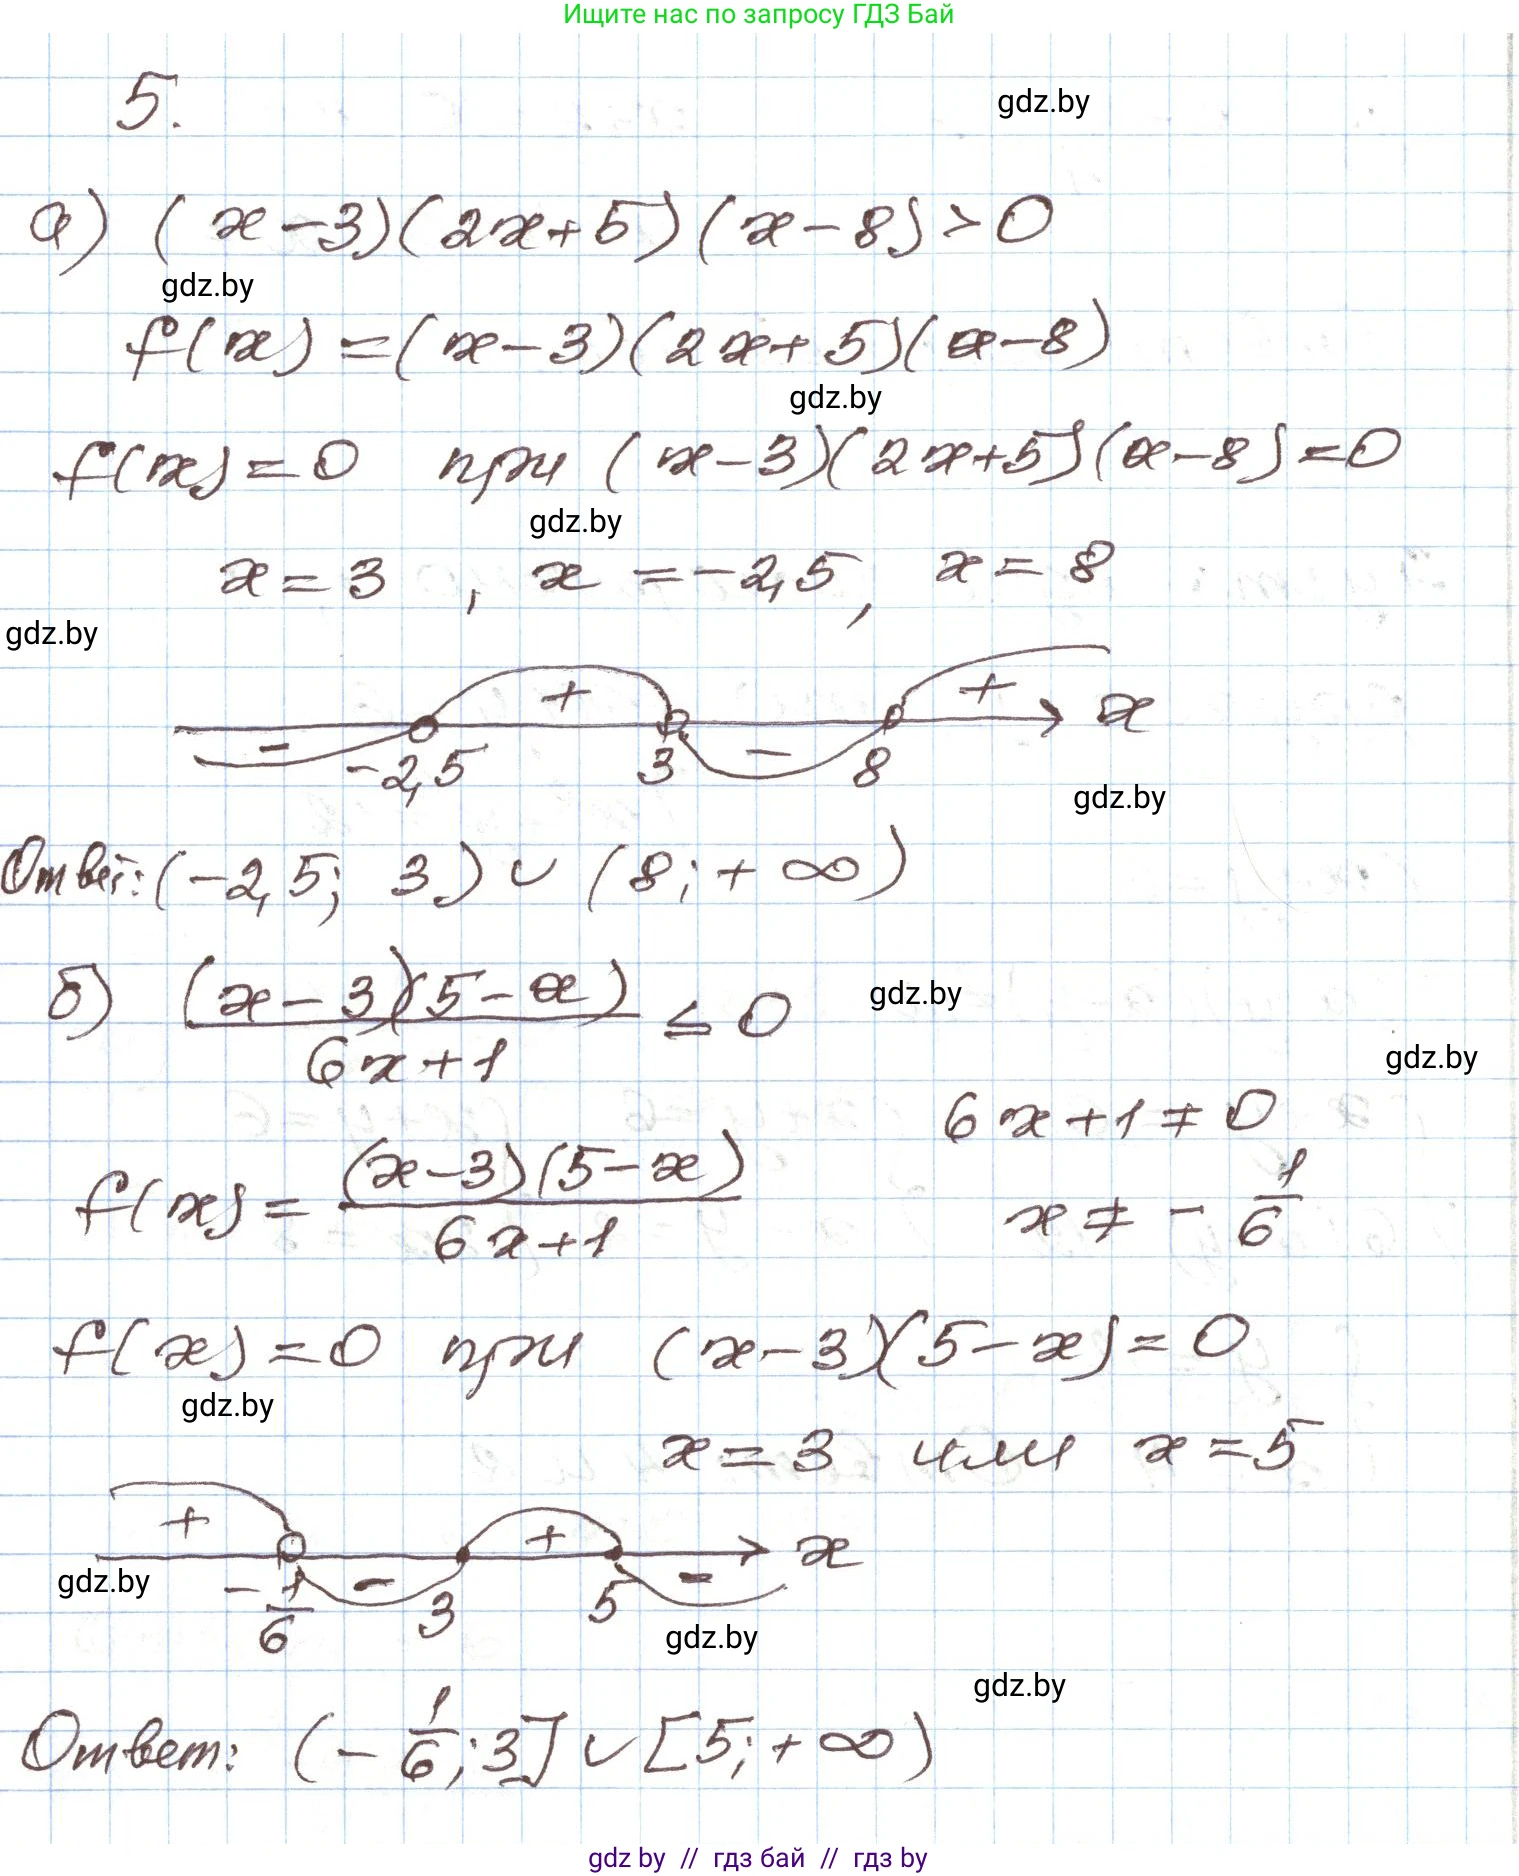 Ищите нас по запросу ГДЗ Бай
5.
gdz.by
а) (x-3)(2x+5)(x-8)>0
gdz.by
f(x)=(x-3)(2x+5)(x-8)
gdz.by
f(x)=0 при (x-3)(2x+5)(x-8)=0
gdz.by
x=3, x=-2,5, x=8
gdz.by
- + - + x
-2,5 3 8
gdz.by
Ответ: (-2,5; 3) ∪ (8; +∞)
б) (x-3)(5-x)/(6x+1) ≤ 0
gdz.by
gdz.by
6x+1≠0
f(x)=(x-3)(5-x)/(6x+1)
x≠-1/6
f(x)=0 при (x-3)(5-x)=0
gdz.by
x=3 или x=5
+ - + - x
gdz.by
-1/6 3 5
gdz.by
gdz.by
Ответ: (-1/6; 3] ∪ [5; +∞)
gdz by // гдз бай // гдз by